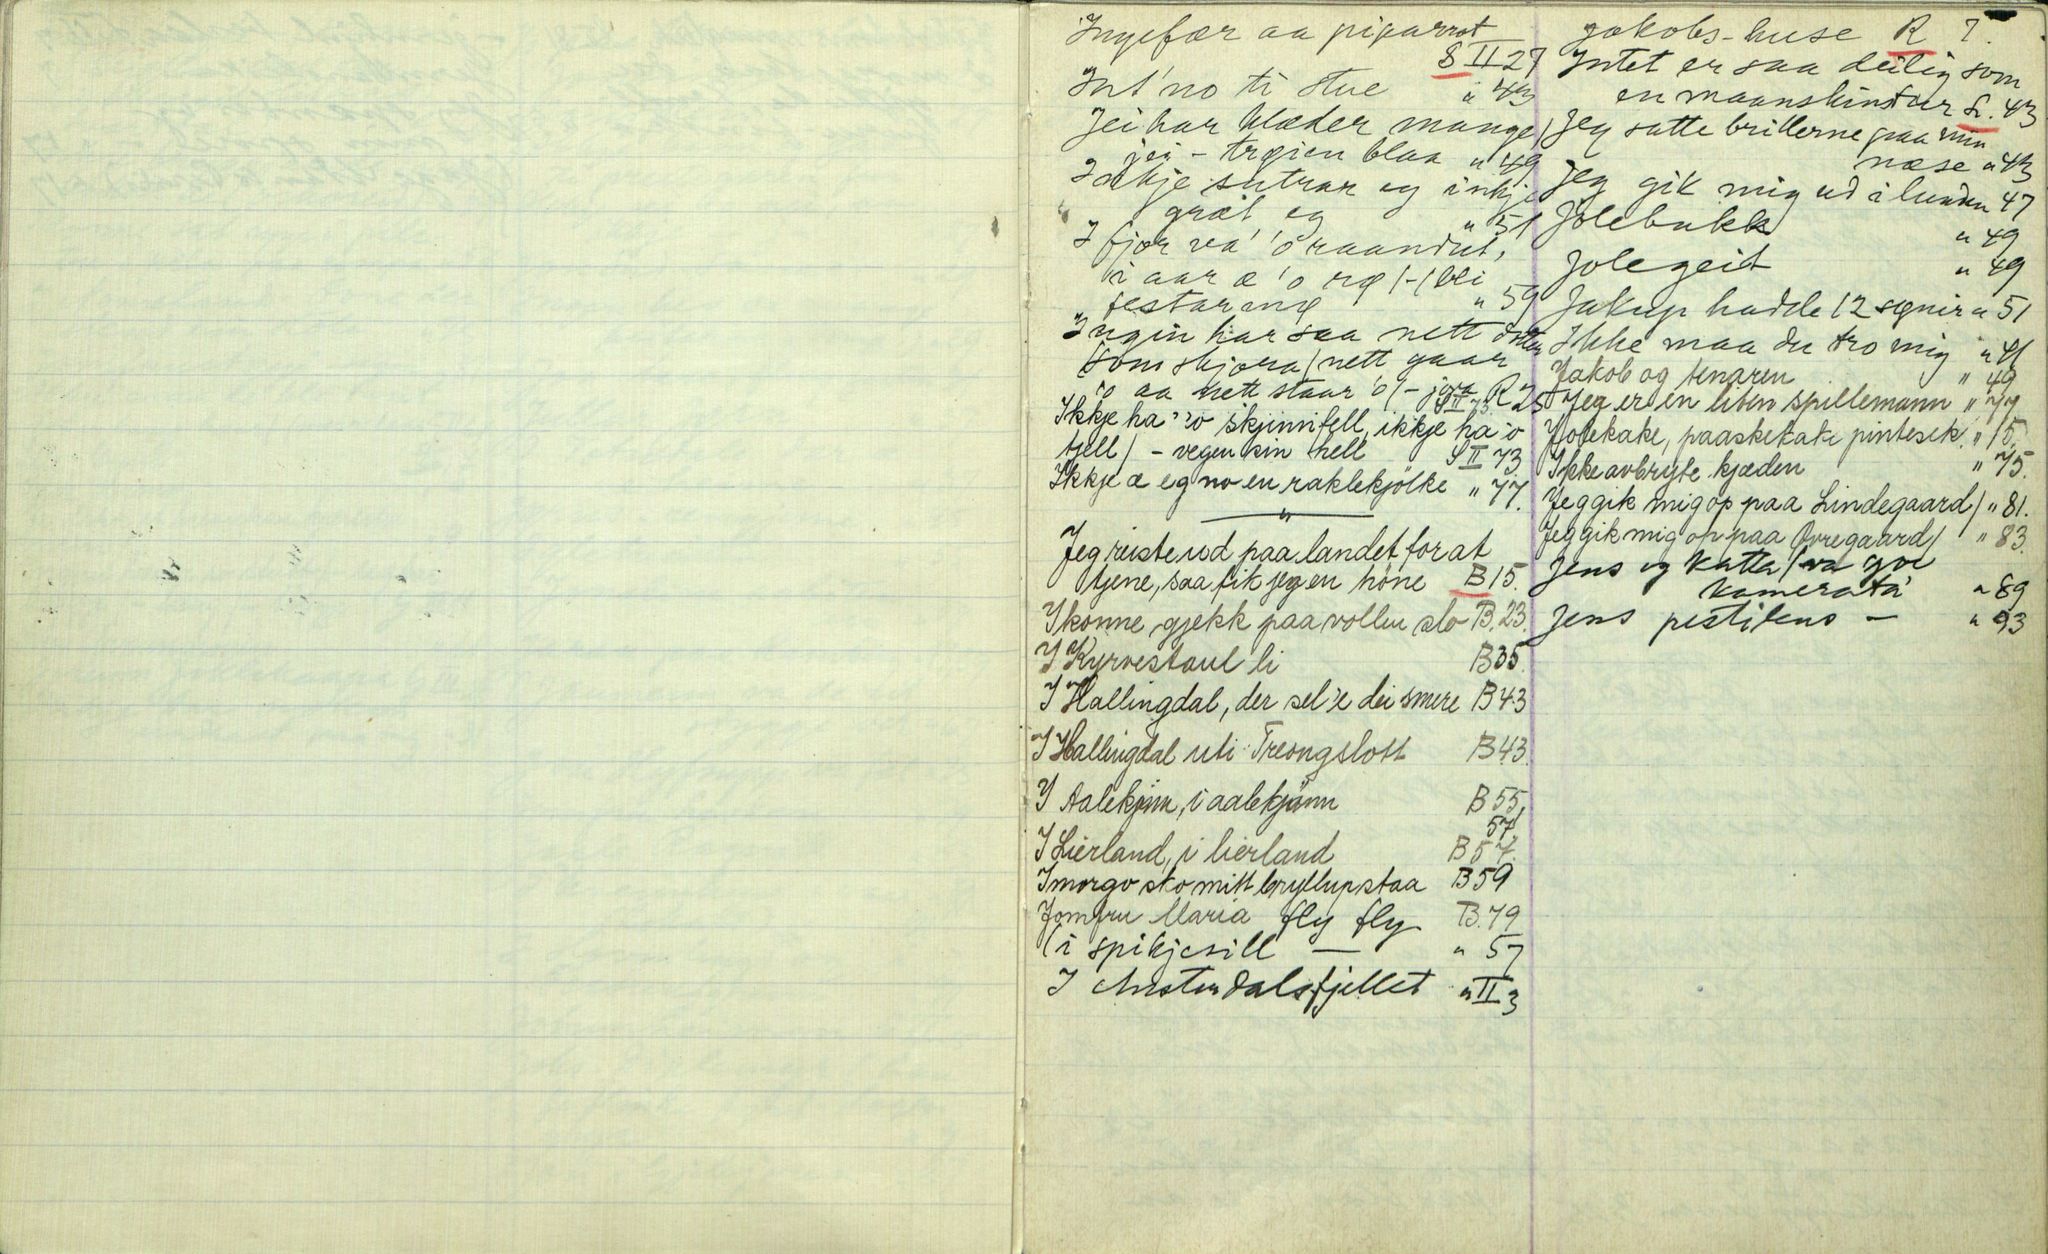 Ingefær aa piparrot
S II 27
Int' no ti stue " 43
Jei har klæder mange/
jei - trøien blaa " 49
Inkje sutrar eg inkje
græt eg " 51
I fjor va' 'o raandut,
i aar æ 'o rø/-/bli
festarmø " 59
Ingin har saa nett dotter
som skjora/nett gaar
'o aa nett staar 'o/- jora R 25
Ikkje ha 'o skjinnfell, ikkje ha 'o
fjell/ - vegen sin hell S II 73
Ikkje æ eg no en raklekjölke " 77.
"
Jeg reiste ud paa landet for at
tjene, saa fik jeg en höne B 15.
I konne gjekk paa vollen slo B. 23.
I Kyrvestaul li B 35
I Hallingdal, der sel'e dei smere B 43
I Hallingdal uti Treongslott B 43.
I Aalekjinn, i aalekjönn B 55,
57,
I Lierland, i lierland B 57.
I morgo sko mitt bryllup staa B 59
Jomfru Maria fly fly B. 79
(i spikjesill — " 57
I Austerdalsfjellet " II 3
Jakobs-huse R 7.
Intet er saa deilig som
en maanskinstur S. 43
Jeg satte brillerne paa min
næse " 43
Jeg gik mig ud i lunden 47
Jolebukk " 49
Jolegeit " 49
Jakup hadde 12 sønir " 51
Ikke maa du tro mig " 41
Jakob og tenaren " 49
Jeg er en liten spillemann " 77
Jolekake, paaskekake pintesek. " 15.
Ikke avbryte kjæden " 75.
Jeg gik mig op paa Lindegaard/ " 81.
Jeg gik mig op paa Ovregaard/ " 83.
Jens og katta/va goe
kamerata " 89
Jens pestilens — " 93